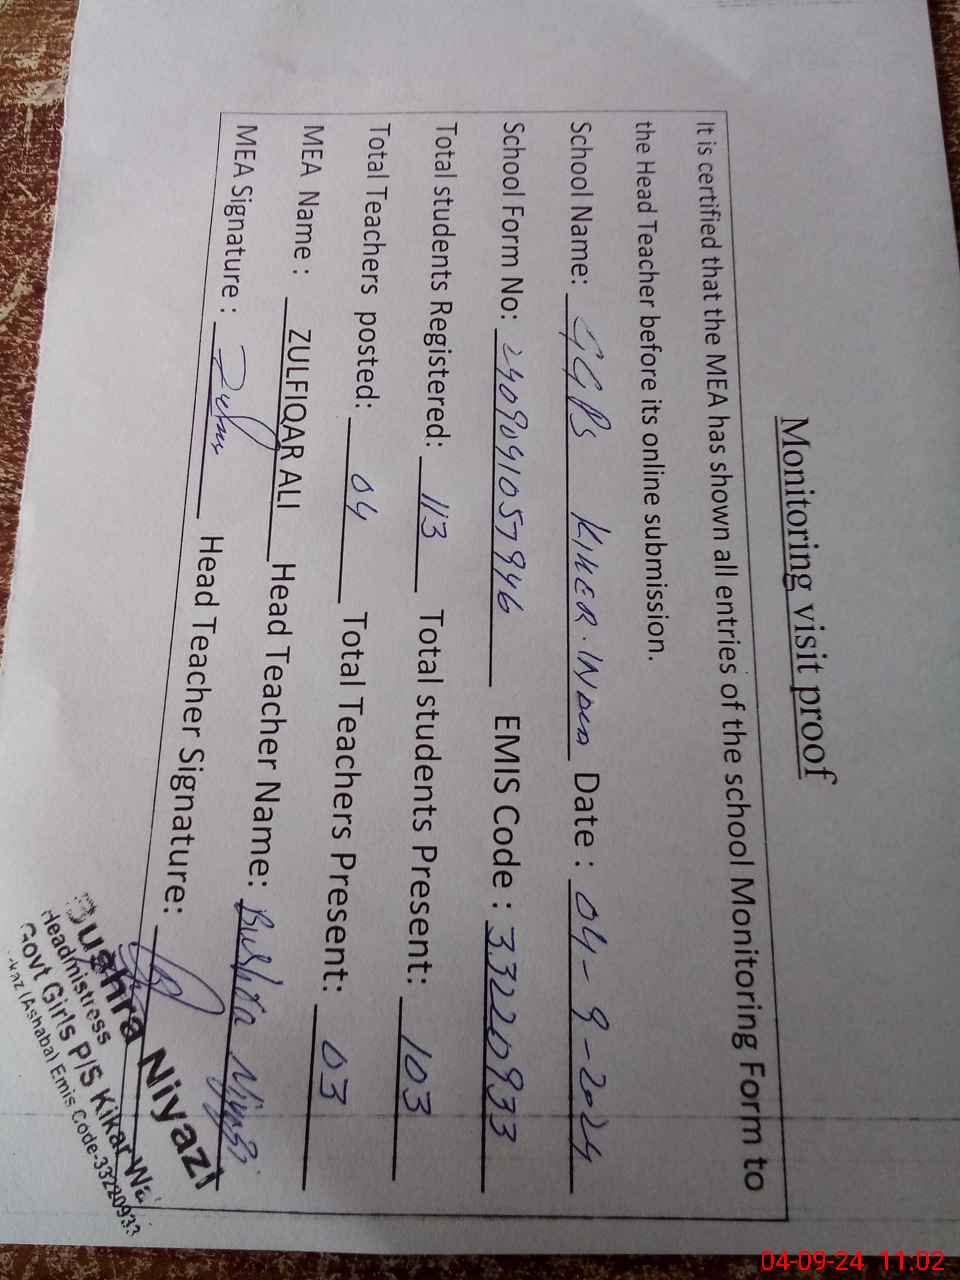 Monitoring visit proof
It is certified that the MEA has shown all entries of the school Monitoring Form to
the Head Teacher before its online submission.
School Name: GGPS KIKER. Date: 04-9-2024
School Form No: 2409091057946 EMIS Code: 33220933
Total students Registered: 113 Total students Present: 103
Total Teachers posted: 04 Total Teachers Present: 03
MEA Name: ZULFIQAR ALI Head Teacher Name: Bushra Niyazi
MEA Signature: Head Teacher Signature:
Bushra Niyazi
Headmistress
Govt Girls P/S Kikar
(Ashaba) Emis Code-33220933
04-09-24 11:02